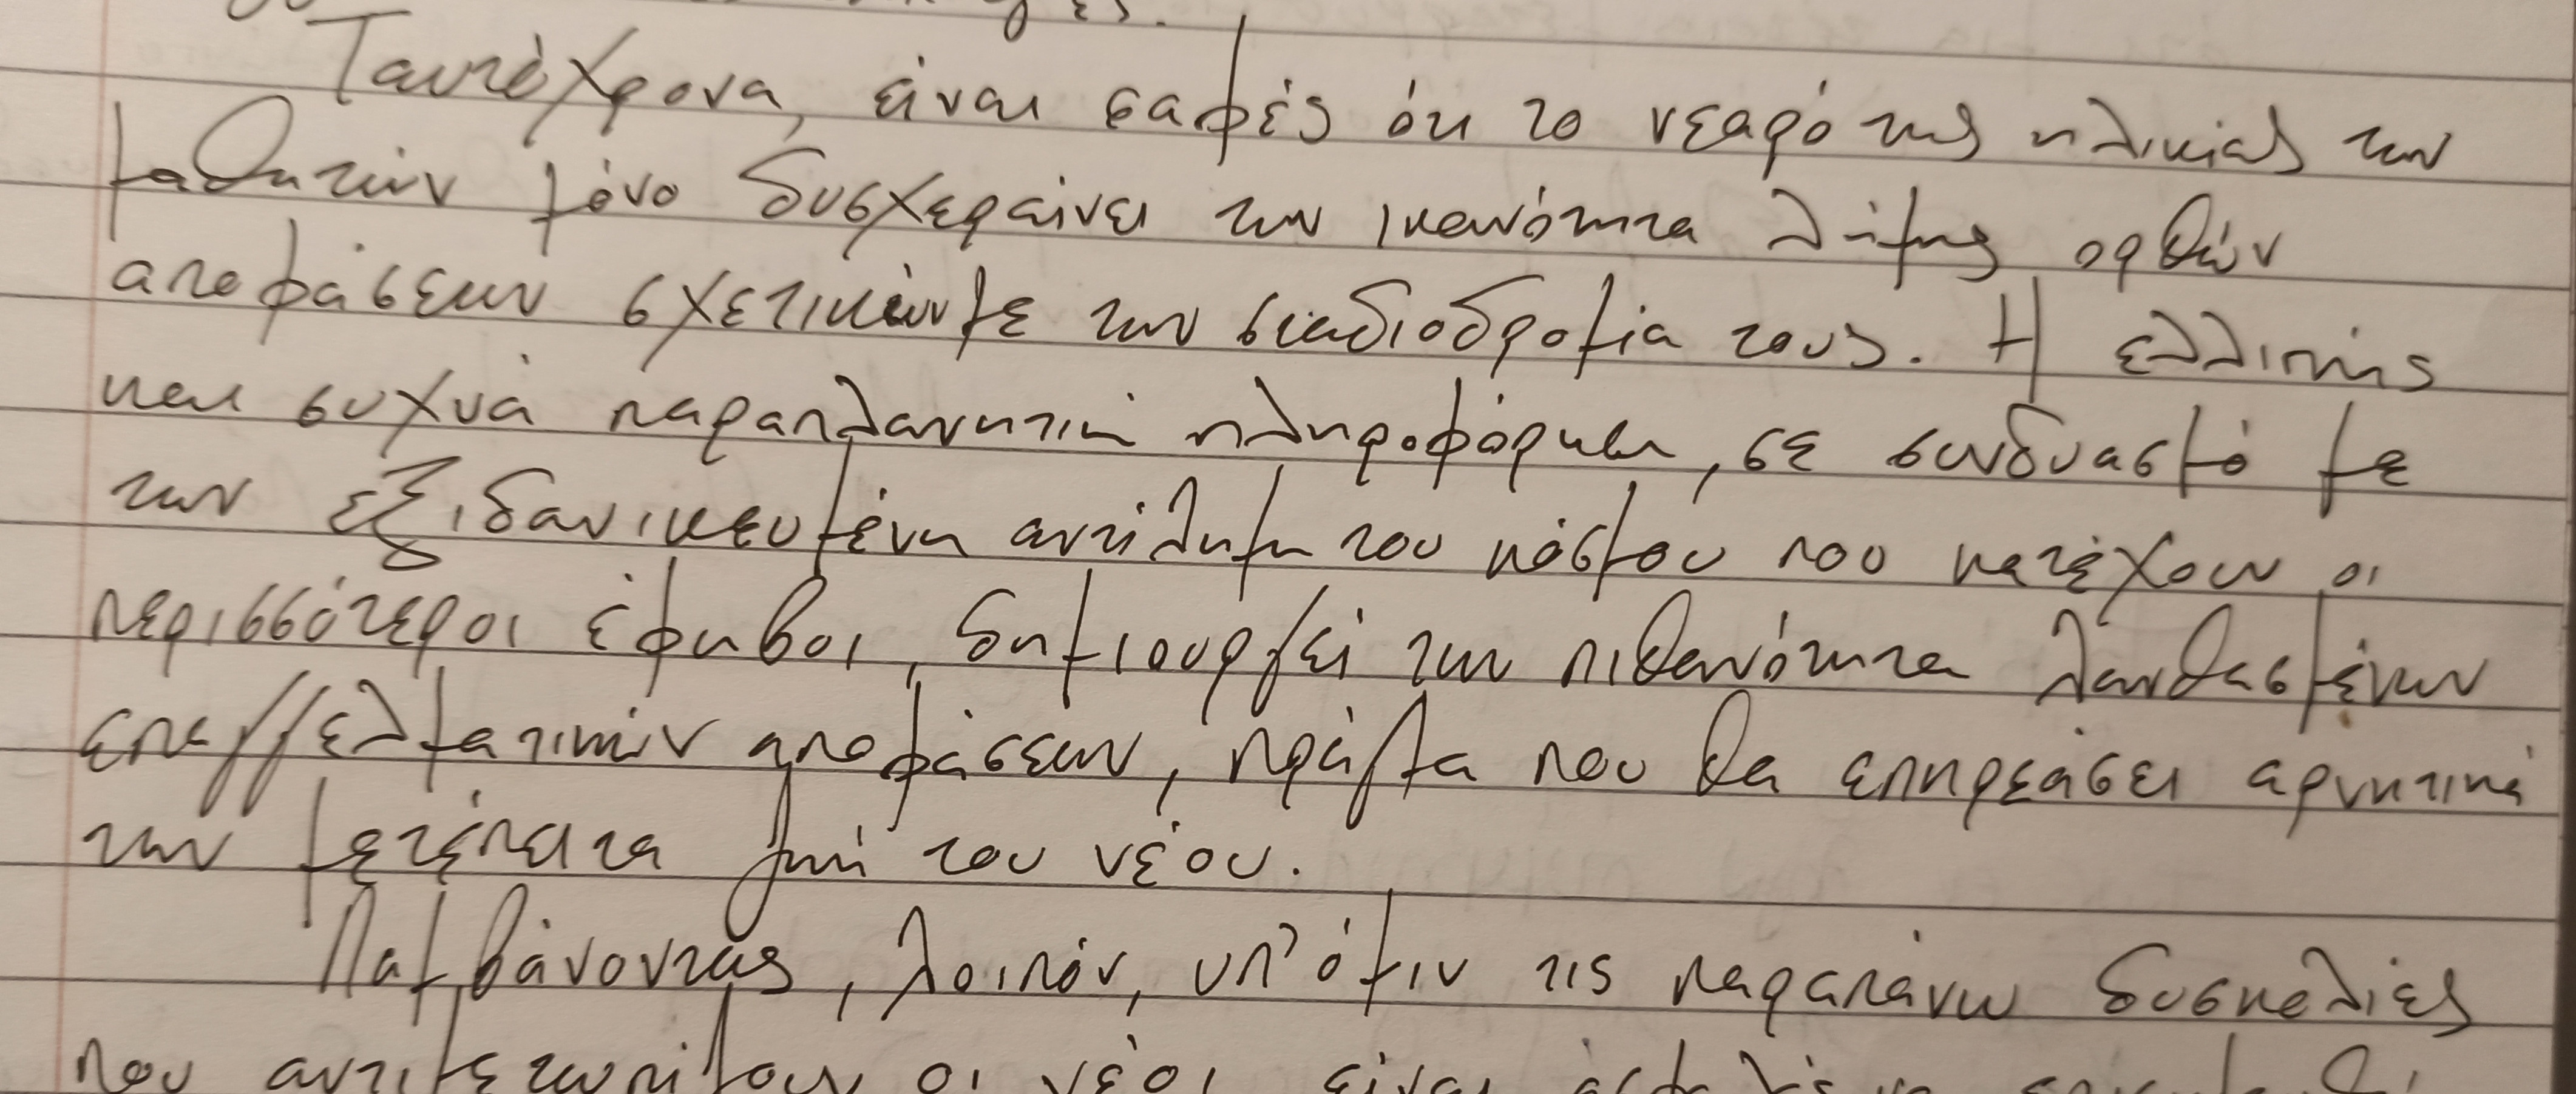 Ταυτόχρονα, είναι σαφές ότι το νεαρό της ηλικίας των
μαθητών μόνο δυσχεραίνει την ικανότητα λήψης ορθών
αποφάσεων σχετικών με την σταδιοδρομία τους. Η ελλιπής
και συχνά παραπλανητική πληροφόρηση, σε συνδυασμό με
την εξιδανικευμένη αντίληψη του κόσμου που κατέχουν οι
περισσότεροι έφηβοι, δημιουργεί την πιθανότητα λανθασμένων
επαγγελματικών αποφάσεων, πράγμα που θα επηρεάσει αρνητικά
την μετέπειτα ζωή του νέου.
Λαμβάνοντας, λοιπόν, υπ' όψιν τις παραπάνω δυσκολίες
που αντιμετωπίζουν οι νέοι είναι